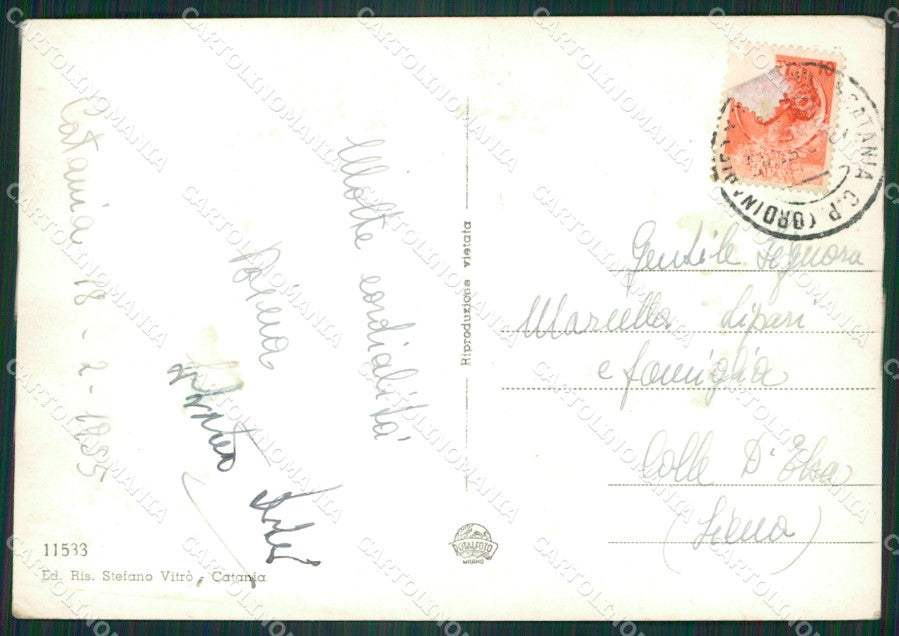 Catania 18-2-1955
Molte cordialità
Gentile Signora
Marcella Lipari
e famiglia
Colle D'Elsa
(Siena)
Riproduzione vietata
CATANIA C.P. (ORDINARIE
ROTALFOTO
MILANO
11533
Ed. Ris. Stefano Vitrò - Catania
CARTOLINOMANIA